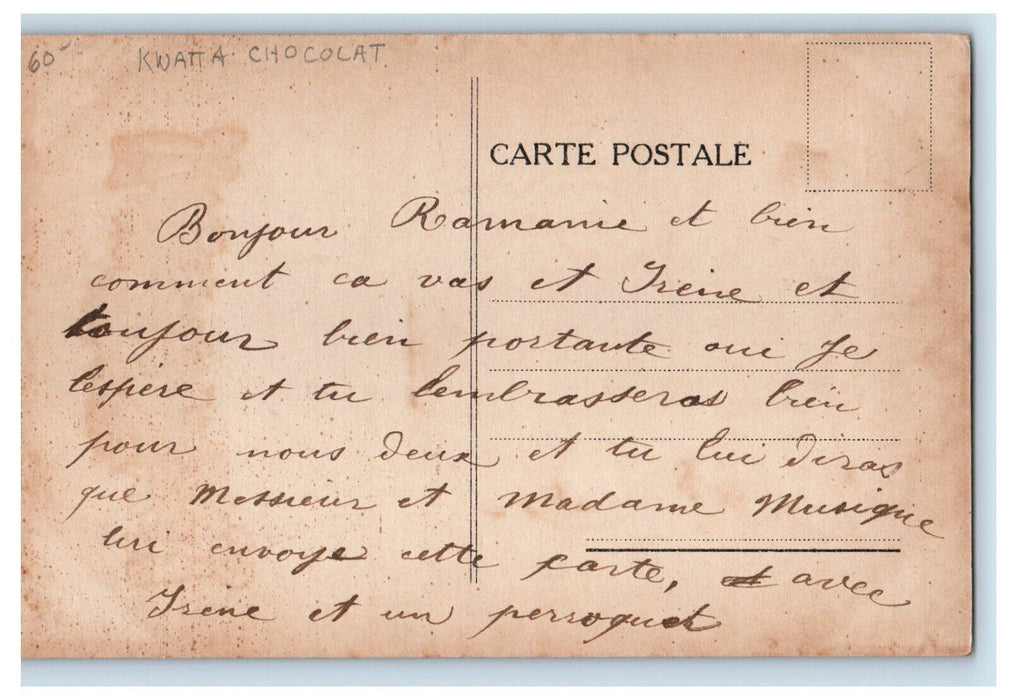 60
KWATTA CHOCOLAT
CARTE POSTALE
Bonjour Ramanie et bien
comment ca vas et Irène et
toujour bien portante oui je
lespère et tu lembrasseras bien
pour nous deux et tu lui diras
que Messieur et Madame Musique
lui envoye cette carte, et avec
Irene et un perroquet